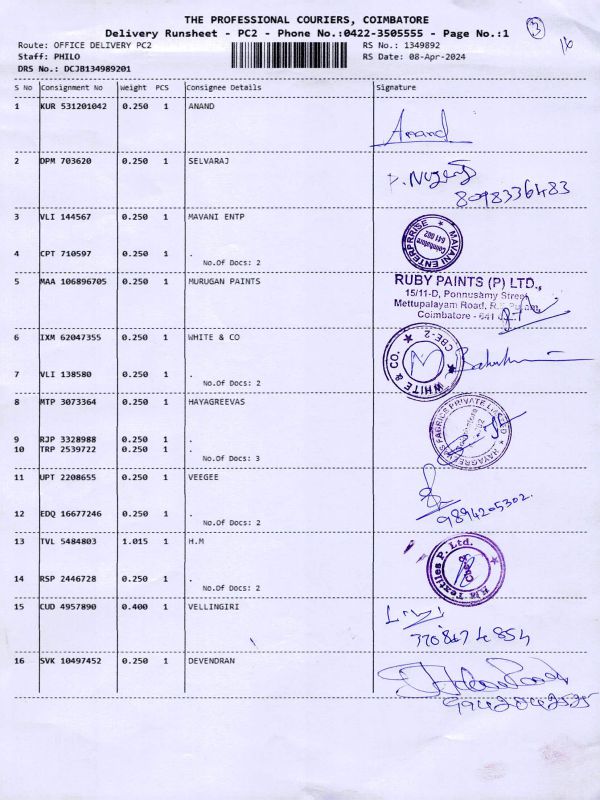 THE PROFESSIONAL COURIERS, COIMBATORE
Delivery Runsheet - PC2 - Phone No.:0422-3505555 - Page No.:1
3
16
Route: OFFICE DELIVERY PC2
RS No.: 1349892
Staff: PHILO
RS Date: 08-Apr-2024
DRS No.: DCJB134989201
S No Consignment No Weight PCS Consignee Details Signature
1 KUR 531201042 0.250 1 ANAND
Anand
2 DPM 703620 0.250 1 SELVARAJ
8098336483
3 VLI 144567 0.250 1 MAVANI ENTP
MAVANI ENTERPRISE
Coimbatore
641 002
4 CPT 710597 0.250 1 .
No.Of Docs: 2
5 MAA 106896705 0.250 1 MURUGAN PAINTS
RUBY PAINTS (P) LTD.,
15/11-D, Ponnusamy Street
Mettupalayam Road,
Coimbatore - 641
6 IXM 62047355 0.250 1 WHITE & CO
WHITE & CO.
CBE-2
7 VLI 138580 0.250 1 .
No.Of Docs: 2
8 MTP 3073364 0.250 1 HAYAGREEVAS
HAYAGREEVAS FABRICS PRIVATE LIMITED
9 RJP 3328988 0.250 1 .
10 TRP 2539722 0.250 1 .
No.Of Docs: 3
11 UPT 2208655 0.250 1 VEEGEE
9894205302.
12 EDQ 16677246 0.250 1 .
No.Of Docs: 2
13 TVL 5484803 1.015 1 H.M
H.M Textiles P. Ltd.
14 RSP 2446728 0.250 1 .
No.Of Docs: 2
15 CUD 4957890 0.400 1 VELLINGIRI
16 SVK 10497452 0.250 1 DEVENDRAN